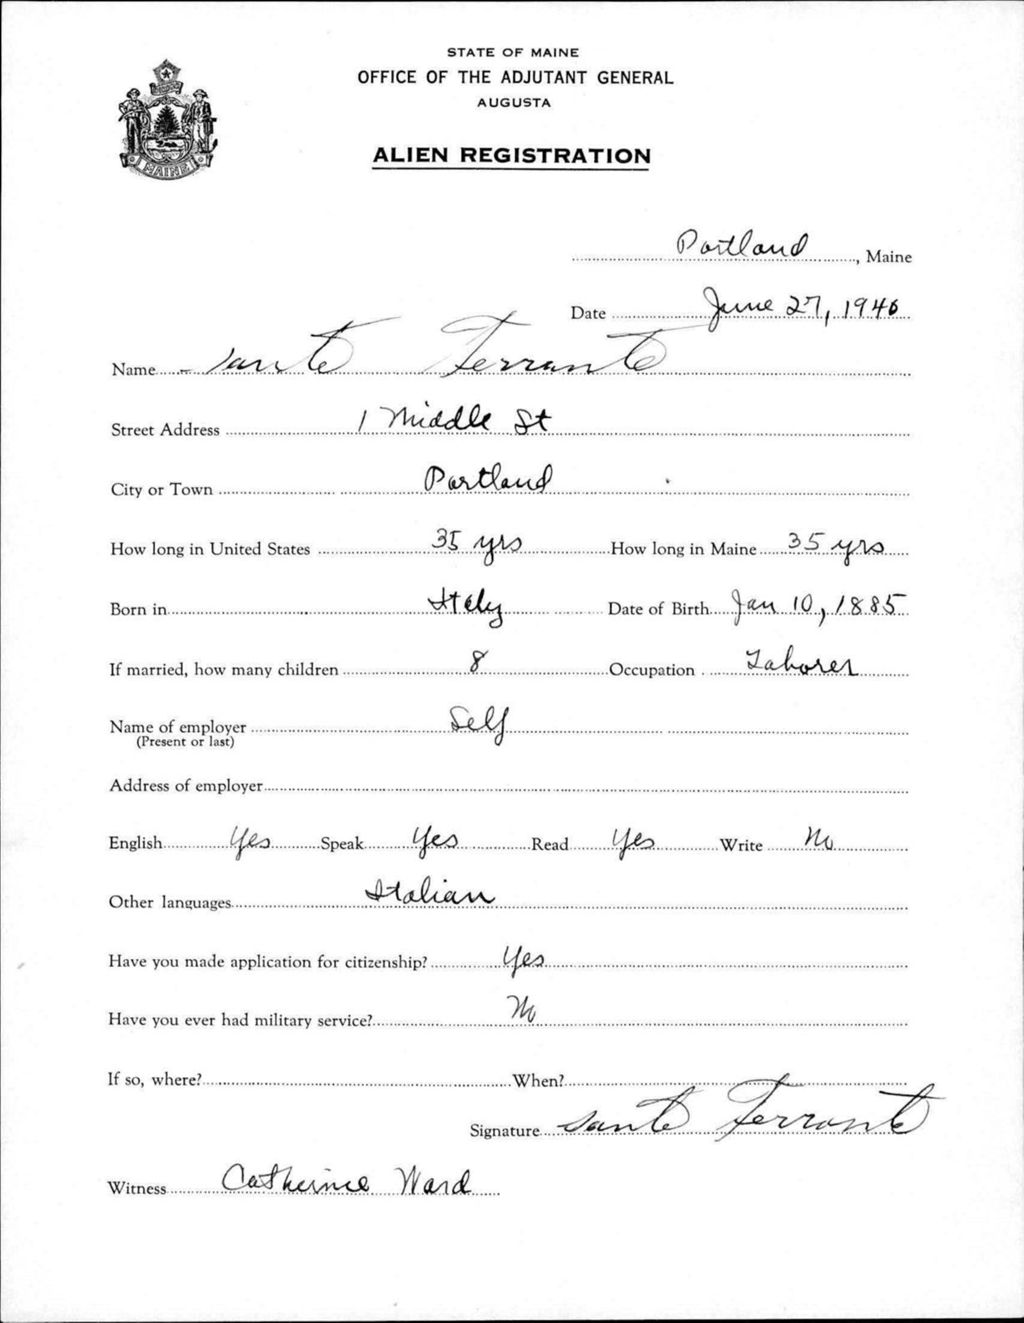 STATE OF MAINE
OFFICE OF THE ADJUTANT GENERAL
AUGUSTA
ALIEN REGISTRATION
MAINE
Portland, Maine
Date June 27, 1940
Name Sante Ferrante
Street Address 1 Middle St
City or Town Portland
How long in United States 35 yrs How long in Maine 35 yrs
Born in Italy Date of Birth Jan 10, 1885
If married, how many children 8 Occupation Laborer
Name of employer Self
(Present or last)
Address of employer
English Yes Speak Yes Read Yes Write No
Other languages Italian
Have you made application for citizenship? Yes
Have you ever had military service? No
If so, where? When?
Signature Sante Ferrante
Witness Catherine Ward